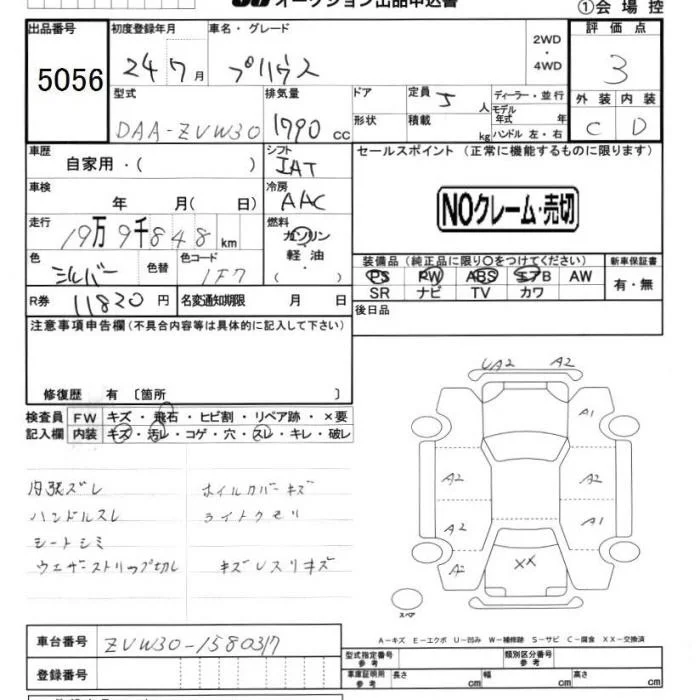 オークション出品申込書
①会場控
出品番号 初度登録年月 車名・グレード 評価点
5056 24 7月 プリウス 2WD・4WD 3
型式 排気量 ドア 定員 5人 ディーラー・並行 外装 内装
DAA-ZVW30 1790 cc 形状 積載 kg モデル年式 年 ハンドル 左・右 C D
車歴 シフト セールスポイント (正常に機能するものに限ります)
自家用・( ) IAT
車検 冷房
年 月( 日) AAC NOクレーム・売切
走行 燃料
19万9千848km ガソリン 軽油・( )
色 色替 色コード 装備品 (純正品に限り○をつけてください) 新車保証書
シルバー 1F7 PS PW ABS エアB AW 有・無
SR ナビ TV カワ
R券 11820円 名変通知期限 月 日 後日品
注意事項申告欄(不具合内容等は具体的に記入して下さい)
修復歴 有 〔箇所 〕
検査員 FW キズ・飛石・ヒビ割・リペア跡・×要
記入欄 内装 キズ・汚レ・コゲ・穴・スレ・キレ・破レ
UA2 A2
A1
A2 A2
A2 A1
A2 XX
スペア
内張ズレ ホイルカバーキズ
ハンドルスレ ライトクモリ
シートシミ
ウエザーストリップ切レ キズレスリキズ
A-キズ E-エクボ U-凹み W-補修跡 S-サビ C-腐食 XX-交換済
車台番号 ZVW30-1580317
登録番号
型式指定番号 参考 類別区分番号 参考
車庫証明用 参考 長さ cm 幅 cm 高さ cm